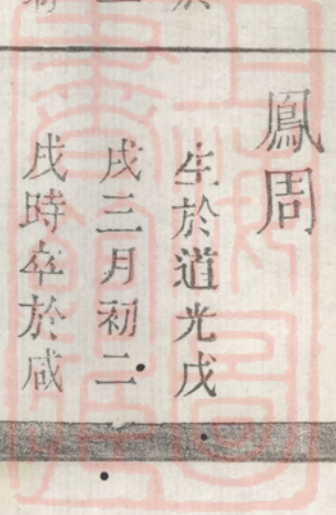 鳳周
生於道光戊
戌三月初二
戌時卒於咸